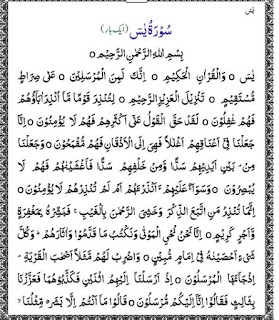 یٰسٓ
سُوْرَۃُ یٰسٓ (ایک بار)
بِسْمِ اللّٰہِ الرَّحْمٰنِ الرَّحِیْمِ ○
یٰسٓ ○ وَالْقُرْاٰنِ الْحَکِیْمِ ○ اِنَّکَ لَمِنَ الْمُرْسَلِیْنَ ○ عَلٰی صِرَاطٍ
مُّسْتَقِیْمٍ ○ تَنْزِیْلَ الْعَزِیْزِ الرَّحِیْمِ ○ لِتُنْذِرَ قَوْمًا مَّآ اُنْذِرَ اٰبَآؤُھُمْ
فَھُمْ غٰفِلُوْنَ ○ لَقَدْ حَقَّ الْقَوْلُ عَلٰٓی اَکْثَرِھِمْ فَھُمْ لَا یُؤْمِنُوْنَ ○ اِنَّا
جَعَلْنَا فِیْٓ اَعْنَاقِھِمْ اَغْلٰلًا فَھِیَ اِلَی الْاَذْقَانِ فَھُمْ مُّقْمَحُوْنَ ○ وَجَعَلْنَا
مِنْۢ بَیْنِ اَیْدِیْھِمْ سَدًّا وَّمِنْ خَلْفِھِمْ سَدًّا فَاَغْشَیْنٰھُمْ فَھُمْ لَا
یُبْصِرُوْنَ ○ وَسَوَآءٌ عَلَیْھِمْ ءَاَنْذَرْتَھُمْ اَمْ لَمْ تُنْذِرْھُمْ لَا یُؤْمِنُوْنَ ○
اِنَّمَا تُنْذِرُ مَنِ اتَّبَعَ الذِّکْرَ وَخَشِیَ الرَّحْمٰنَ بِالْغَیْبِ ۚ فَبَشِّرْہُ بِمَغْفِرَۃٍ
وَّاَجْرٍ کَرِیْمٍ ○ اِنَّا نَحْنُ نُحْیِ الْمَوْتٰی وَنَکْتُبُ مَا قَدَّمُوْا وَاٰثَارَھُمْ ؕ وَکُلَّ
شَیْءٍ اَحْصَیْنٰہُ فِیْٓ اِمَامٍ مُّبِیْنٍ ○ وَاضْرِبْ لَھُمْ مَّثَلًا اَصْحٰبَ الْقَرْیَۃِ ۘ
اِذْ جَآءَھَا الْمُرْسَلُوْنَ ○ اِذْ اَرْسَلْنَآ اِلَیْھِمُ اثْنَیْنِ فَکَذَّبُوْھُمَا فَعَزَّزْنَا
بِثَالِثٍ فَقَالُوْٓا اِنَّآ اِلَیْکُمْ مُّرْسَلُوْنَ ○ قَالُوْا مَآ اَنْتُمْ اِلَّا بَشَرٌ مِّثْلُنَا ۙ